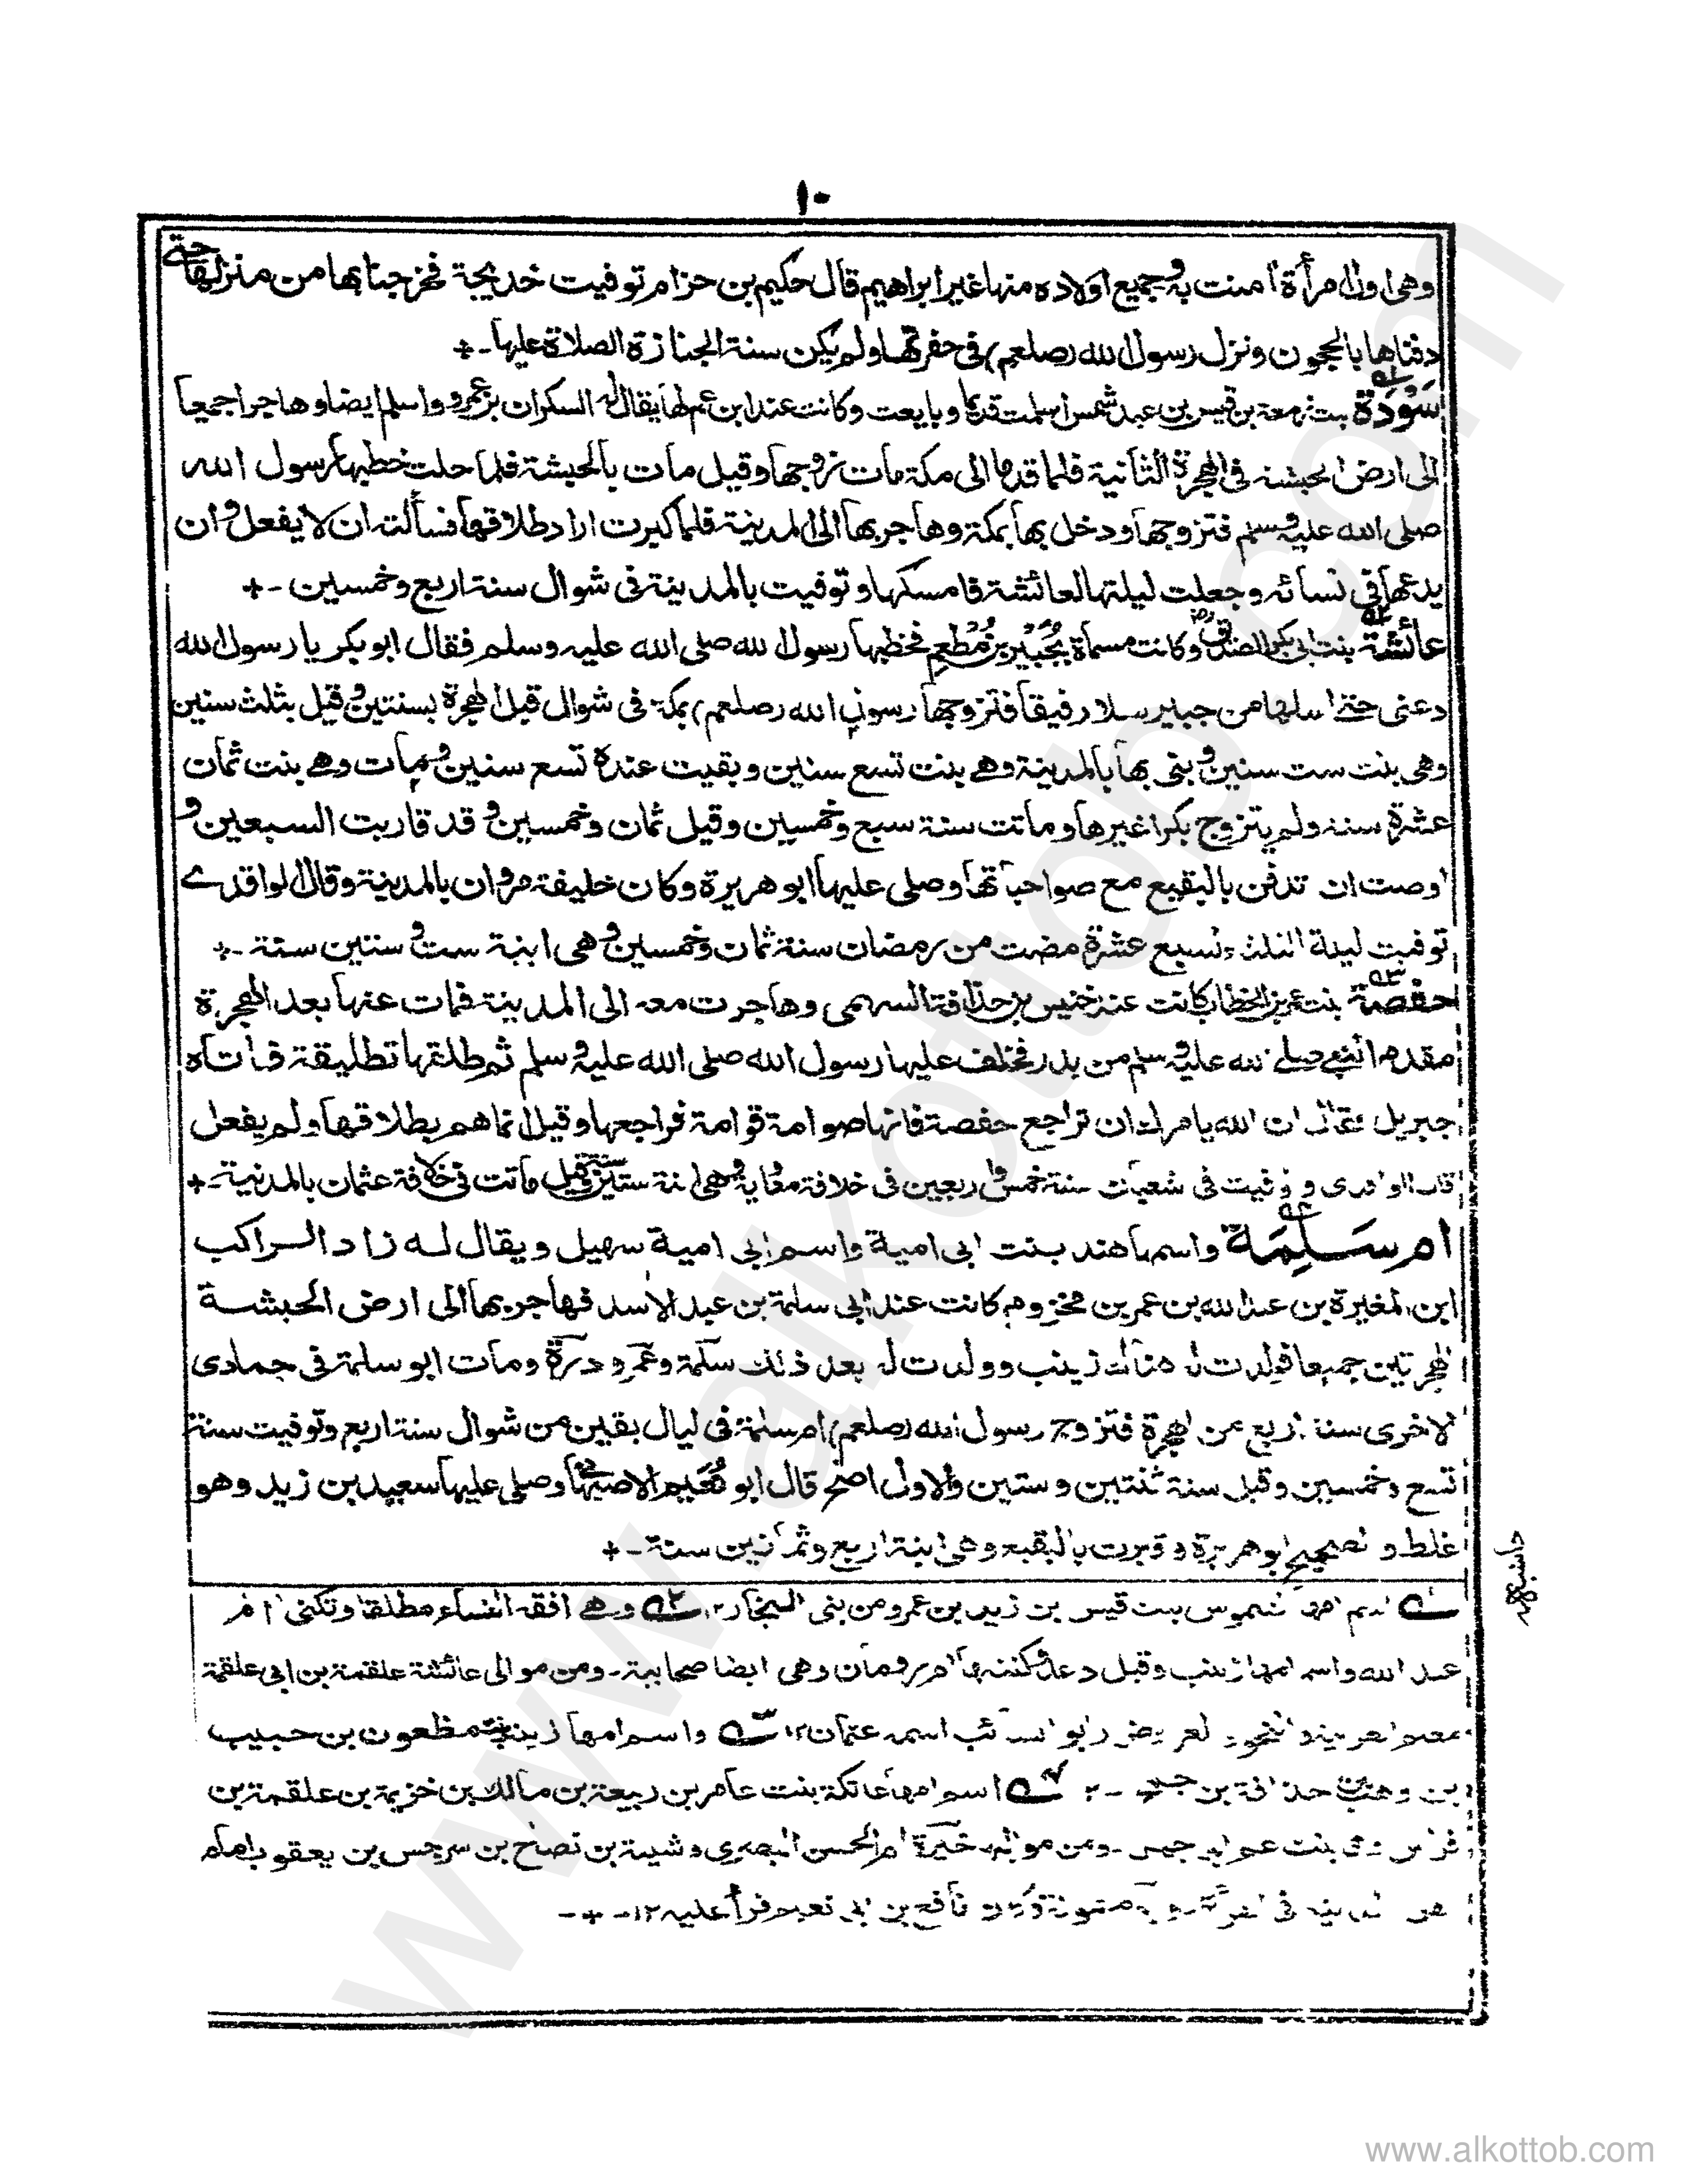 ١٠
وهى اول امرأة امنت به وجميع اولاده منها غير ابراهيم قال حكيم بن حزام توفيت خديجة فخرجنا بها من منزلها حتى
دفناها بالحجون ونزل رسول الله (صلعم) فى حفرتها ولم يكن سنة الجنازة الصلاة عليها -+
سَوْدَة بنت زمعة بن قيس بن عبد شمس اسلمت قديما وبايعت وكانت عند ابن عم لها يقال له السكران بن عمرو واسلم ايضا وهاجرا جميعا
الى ارض الحبشة فى الهجرة الثانية فلما قدما الى مكة مات زوجها وقيل مات بالحبشة فلما حلت خطبها رسول الله
صلى الله عليه وسلم فتزوجها ودخل بها بمكة وهاجر بها الى المدينة فلما كبرت اراد طلاقها فسألته ان لا يفعل وان
يدعها فى نسائه وجعلت ليلتها لعائشة فامسكها وتوفيت بالمدينة فى شوال سنة اربع وخمسين -+
عائشة بنت ابى بكر الصديق رض وكانت مسماة بجُبَيْر بن مُطْعِم فخطبها رسول الله صلى الله عليه وسلم فقال ابو بكر يا رسول الله
دعنى حتى اسلها من جبير سلا رفيقا فتزوجها رسول الله (صلعم) بمكة فى شوال قبل الهجرة بسنتين وقيل بثلث سنين
وهى بنت ست سنين وبنى بها بالمدينة وهے بنت تسع سنين وبقيت عنده تسع سنين ومات وهے بنت ثمان
عشرة سنة ولم يتزوج بكرا غيرها وماتت سنة سبع وخمسين وقيل ثمان وخمسين وقد قاربت السبعين و
اوصت ان تدفن بالبقيع مع صواحباتها وصلى عليها ابو هريرة وكان خليفة مروان بالمدينة وقال الواقدے
توفيت ليلة الثلثاء لسبع عشرة مضت من رمضان سنة ثمان وخمسين وهى ابنة ست وستين سنة -+
حفصة بنت عمر بن الخطاب كانت عند خنيس بن حذافة السهمى وهاجرت معه الى المدينة فمات عنها بعد الهجرة
مقدم النبى صلے الله عليه وسلم من بدر فخلف عليها رسول الله صلى الله عليه وسلم ثم طلقها تطليقة فأتاه
جبريل فقال ان الله يامرك ان تراجع حفصة فانها صوامة قوامة فراجعها وقيل انما هم بطلاقها ولم يفعل
قال الواقدى وتوفيت فى شعبان سنة خمس واربعين فى خلافة معاية وهى ابنة ستين سنة وقيل ماتت فى خلافة عثمان بالمدنية -+
ام سَلِمَة واسمها هند بنت ابى امية واسم ابى امية سهيل ويقال له زاد الراكب
ابن المغيرة بن عبد الله بن عمر بن مخزوم كانت عند ابى سلمة بن عبد الاسد فهاجر بها الى ارض الحبشة
الهجرتين جميعا فولدت له هناك زينب وولدت له بعد ذلك سلمة وعمر ودرة ومات ابو سلمة فى جمادى
الاخرى سنة اربع من الهجرة فتزوج رسول الله (صلعم) ام سلمة فى ليال بقين من شوال سنة اربع وتوفيت سنة
تسع وخمسين وقيل سنة ثنتين وستين والاول اصح قال ابو نُعَيم الاصبهانى وصلى عليها سعيد بن زيد وهو
غلط والصحيح ابو هريرة وقبرت بالبقيع وهى ابنة اربع وثمانين سنة -+
حاشيه
لـه اسم امها شموس بنت قيس بن زيد بن عمرو من بنى النجار ١٢ لـه وهے افقه النساء مطلقا وتكنى ام
عبد الله واسم امها زينب وقيل دعد وكنيتها ام رومان وهى ايضا صحابية - ومن موالى عائشة علقمة بن ابى علقمة
اسمه عثمان ١٢ لـه واسم امها زينب بنت مظعون بن حبيب
بن وهب بن حذافة بن جمح - ٢ لـه اسم امها عاتكة بنت عامر بن ربيعة بن مالك بن خزيمة بن علقمة بن
فراس ومن مواليها خيرة ام الحسن البصرى وشيبة بن نصاح بن سرجس بن يعقوب امام
نافع بن ابى نعيم قرأ عليه ١٢ -+-
www.alkottob.com
www.alkottob.com